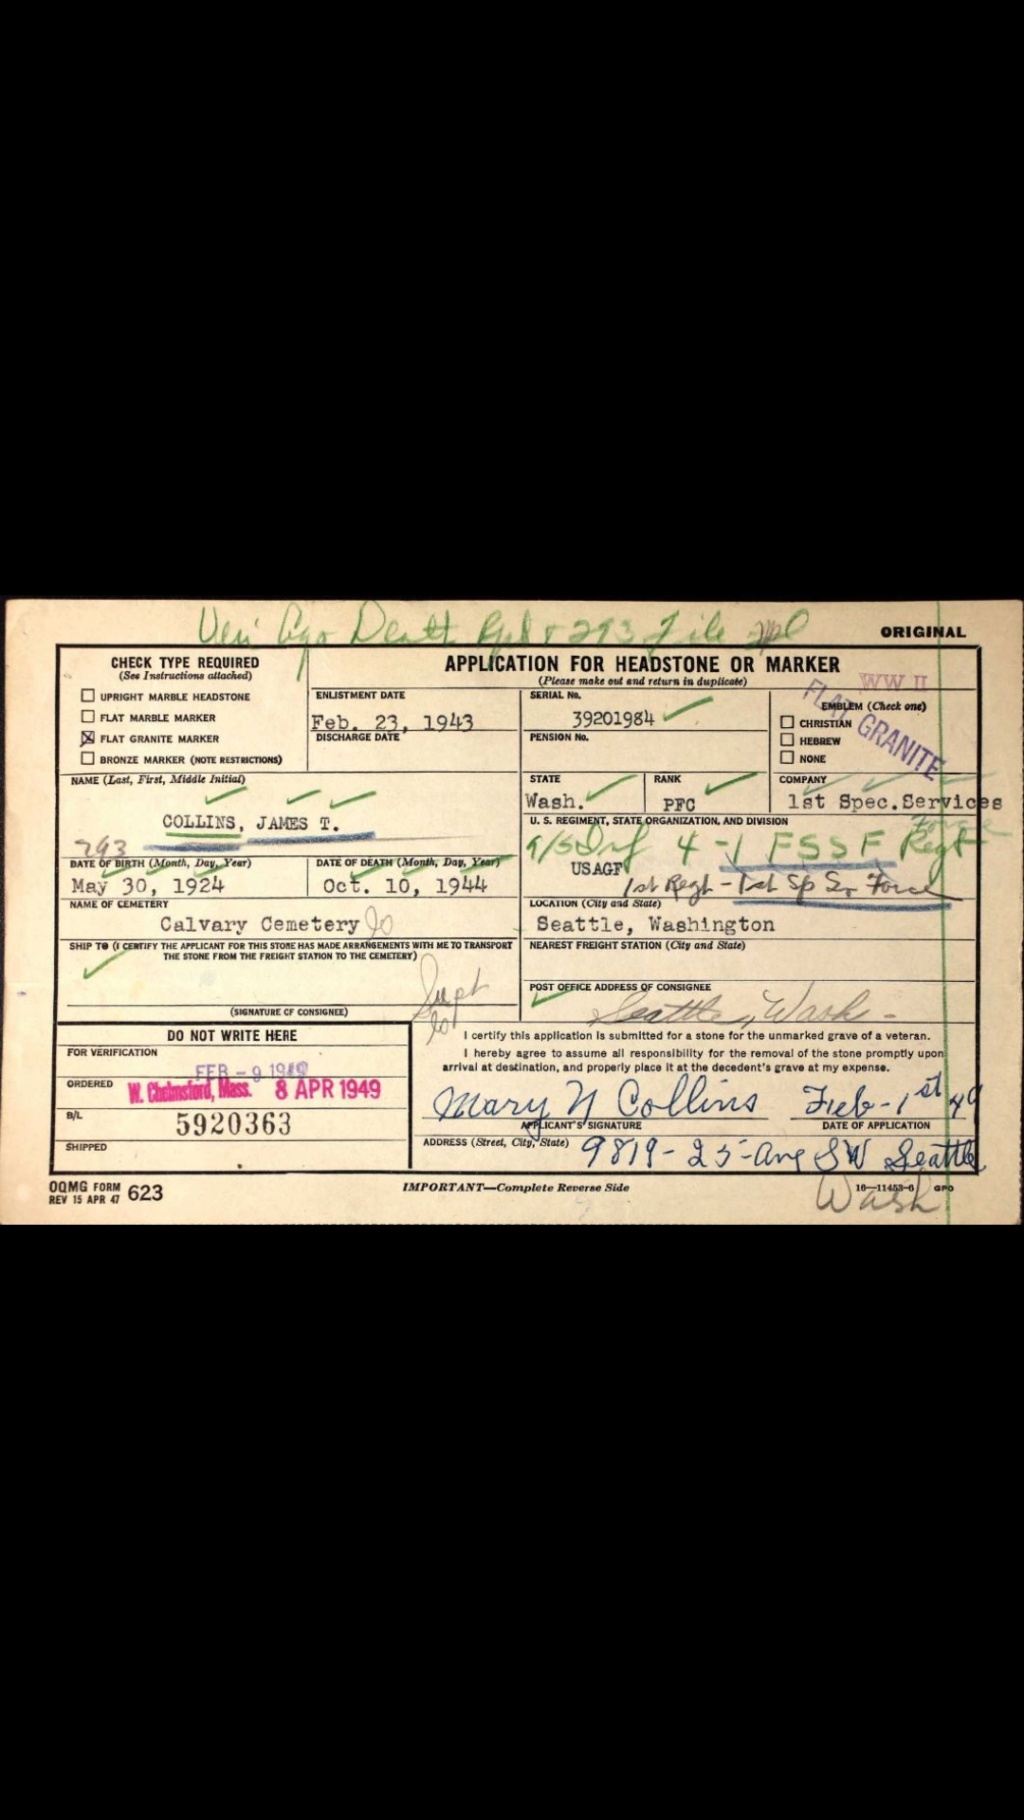 Death & 293 File
ORIGINAL
CHECK TYPE REQUIRED
(See Instructions attached)
UPRIGHT MARBLE HEADSTONE
FLAT MARBLE MARKER
FLAT GRANITE MARKER
BRONZE MARKER (NOTE RESTRICTIONS)
APPLICATION FOR HEADSTONE OR MARKER
(Please make out and return in duplicate)
WW II
FLAT GRANITE
ENLISTMENT DATE
Feb. 23, 1943
DISCHARGE DATE
SERIAL No.
39201984
PENSION No.
EMBLEM (Check one)
CHRISTIAN
HEBREW
NONE
NAME (Last, First, Middle Initial)
COLLINS, JAMES T.
293
STATE
Wash.
RANK
PFC
COMPANY
1st Spec.Services
Force
U. S. REGIMENT, STATE ORGANIZATION, AND DIVISION
4 -1 FSSF Regt
USAGF
1st Regt - 1st Sp S. Force
DATE OF BIRTH (Month, Day, Year)
May 30, 1924
DATE OF DEATH (Month, Day, Year)
Oct. 10, 1944
NAME OF CEMETERY
Calvary Cemetery
LOCATION (City and State)
Seattle, Washington
SHIP TO (I CERTIFY THE APPLICANT FOR THIS STONE HAS MADE ARRANGEMENTS WITH ME TO TRANSPORT
THE STONE FROM THE FREIGHT STATION TO THE CEMETERY)
Supt
(SIGNATURE OF CONSIGNEE)
NEAREST FREIGHT STATION (City and State)
POST OFFICE ADDRESS OF CONSIGNEE
Seattle, Wash -
DO NOT WRITE HERE
FOR VERIFICATION
FEB - 9 1949
ORDERED
W. Chelmsford, Mass. 8 APR 1949
B/L
5920363
SHIPPED
I certify this application is submitted for a stone for the unmarked grave of a veteran.
I hereby agree to assume all responsibility for the removal of the stone promptly upon
arrival at destination, and properly place it at the decedent's grave at my expense.
Mary N Collins Feb-1st 49
APPLICANT'S SIGNATURE
DATE OF APPLICATION
ADDRESS (Street, City, State)
9819-25-Ave SW Seattle
Wash
OQMG FORM
REV 15 APR 47 623
IMPORTANT—Complete Reverse Side
16—11453-6 GPO